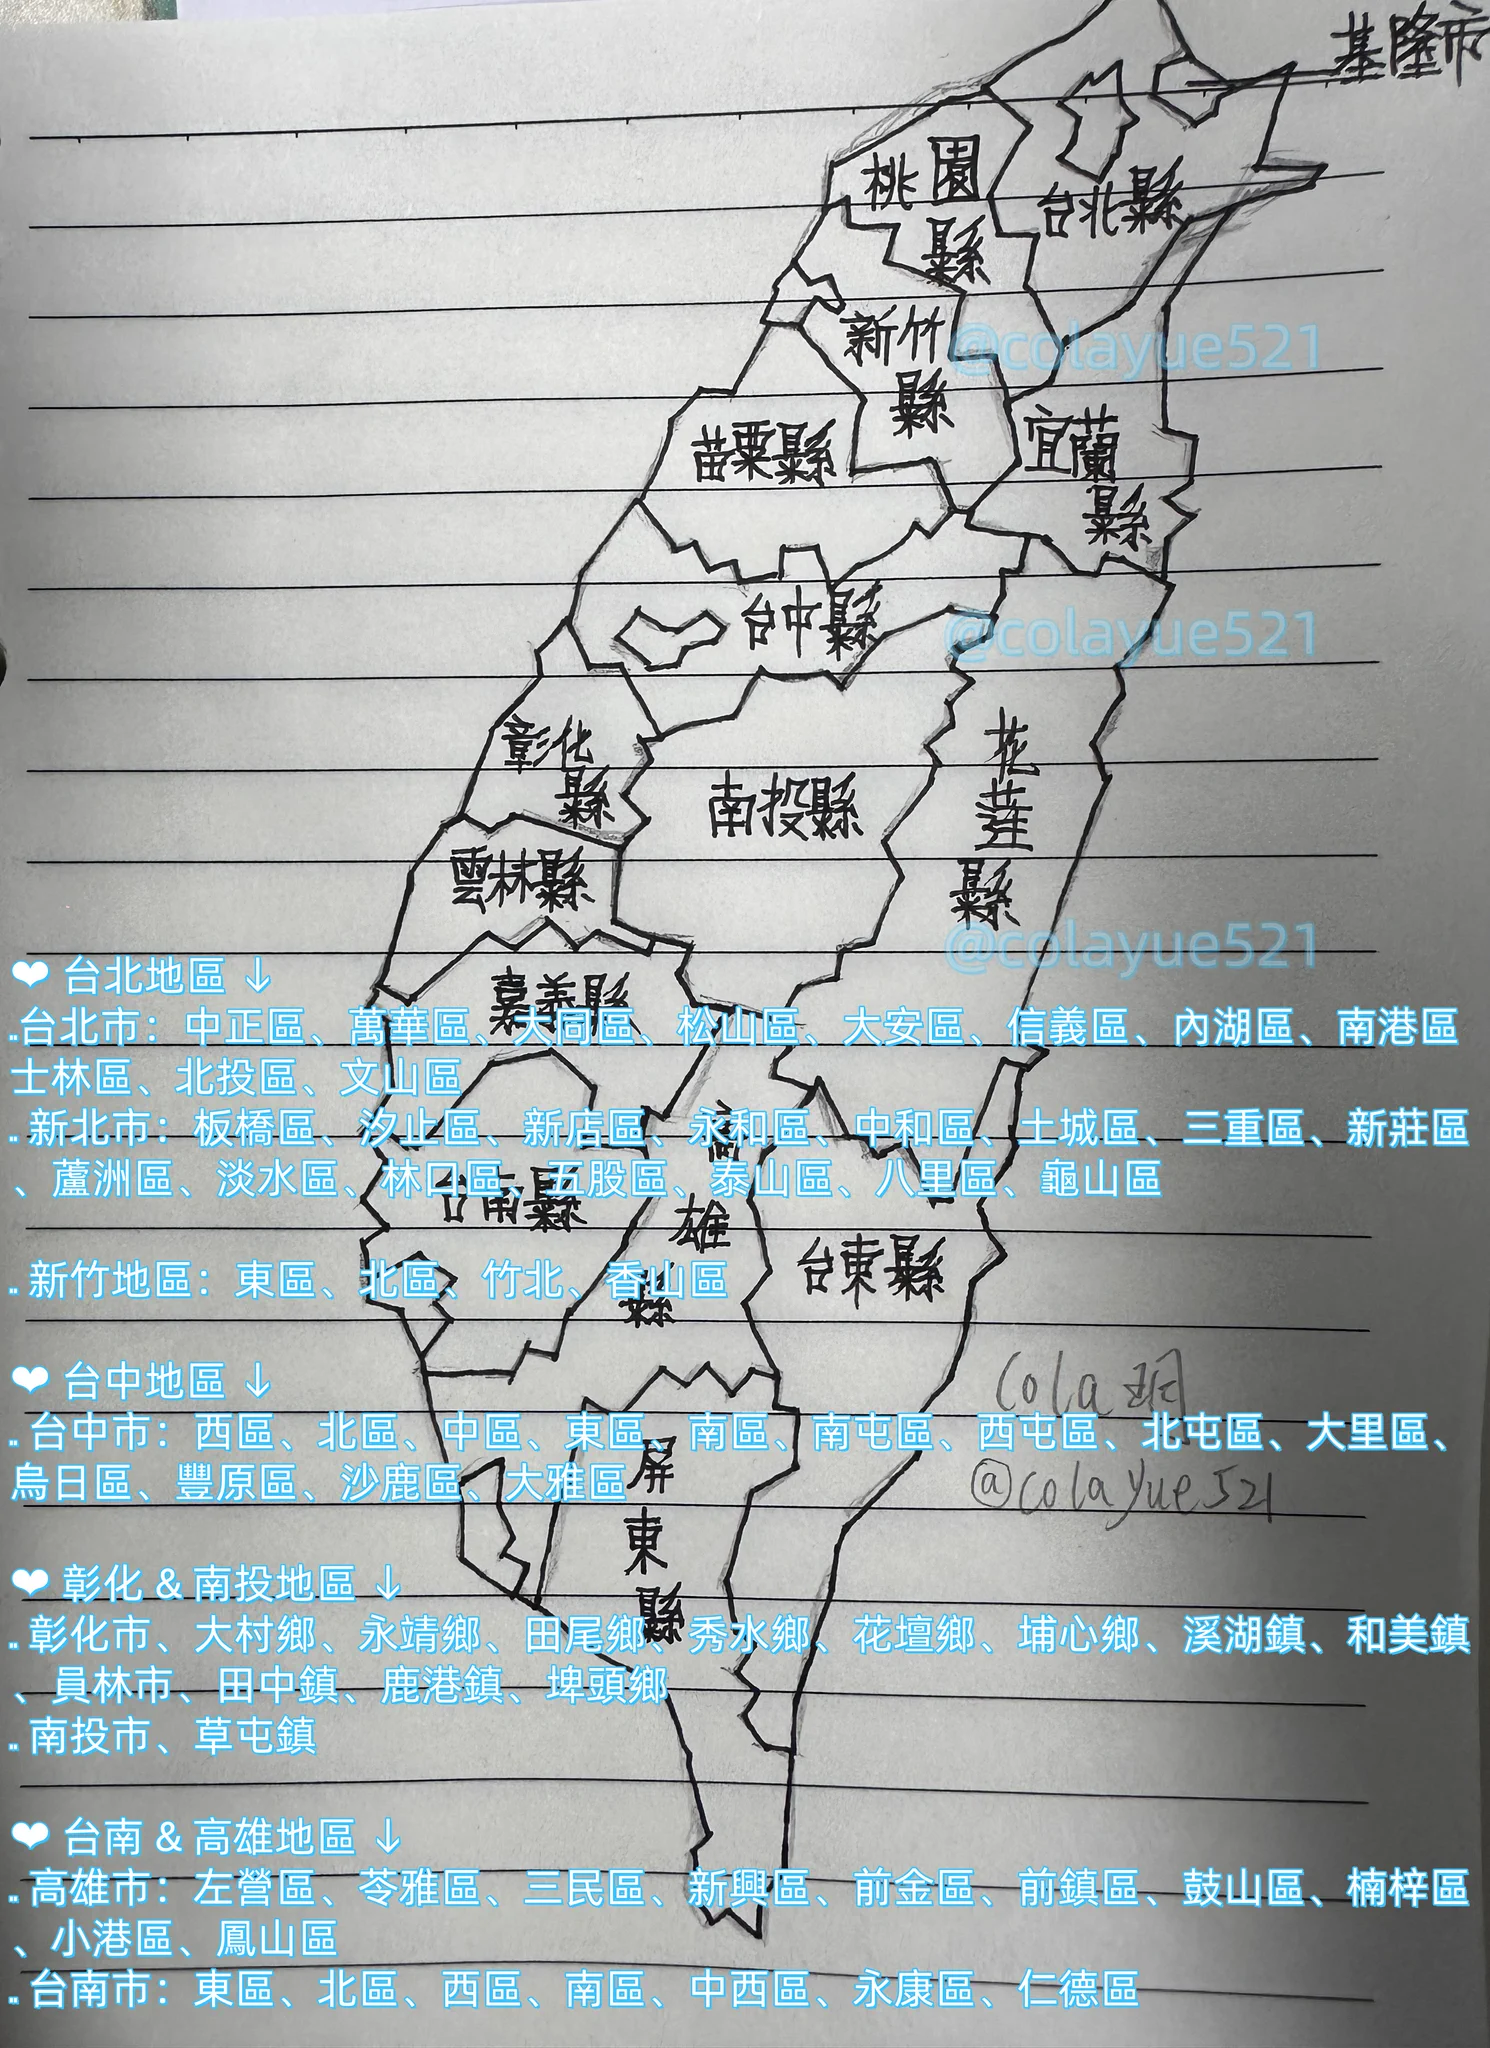 基隆市
桃園
縣
台北縣
新竹
縣
@colayue521
苗栗縣
宜蘭
縣
台中縣
@colayue521
彰化
縣
南投縣
花
蓮
縣
雲林縣
@colayue521
❤ 台北地區 ↓
嘉義縣
..台北市：中正區、萬華區、大同區、松山區、大安區、信義區、內湖區、南港區
士林區、北投區、文山區
.. 新北市：板橋區、汐止區、新店區、永和區、中和區、土城區、三重區、新莊區
、蘆洲區、淡水區、林口區、五股區、泰山區、八里區、龜山區
高
雄
縣
台南縣
台東縣
.. 新竹地區：東區、北區、竹北、香山區
❤ 台中地區 ↓
Cola玥
.. 台中市：西區、北區、中區、東區、南區、南屯區、西屯區、北屯區、大里區、
烏日區、豐原區、沙鹿區、大雅區
@colayue521
屏
東
縣
❤ 彰化 & 南投地區 ↓
.. 彰化市、大村鄉、永靖鄉、田尾鄉、秀水鄉、花壇鄉、埔心鄉、溪湖鎮、和美鎮
、員林市、田中鎮、鹿港鎮、埤頭鄉
.. 南投市、草屯鎮
❤ 台南 & 高雄地區 ↓
.. 高雄市：左營區、苓雅區、三民區、新興區、前金區、前鎮區、鼓山區、楠梓區
、小港區、鳳山區
.. 台南市：東區、北區、西區、南區、中西區、永康區、仁德區